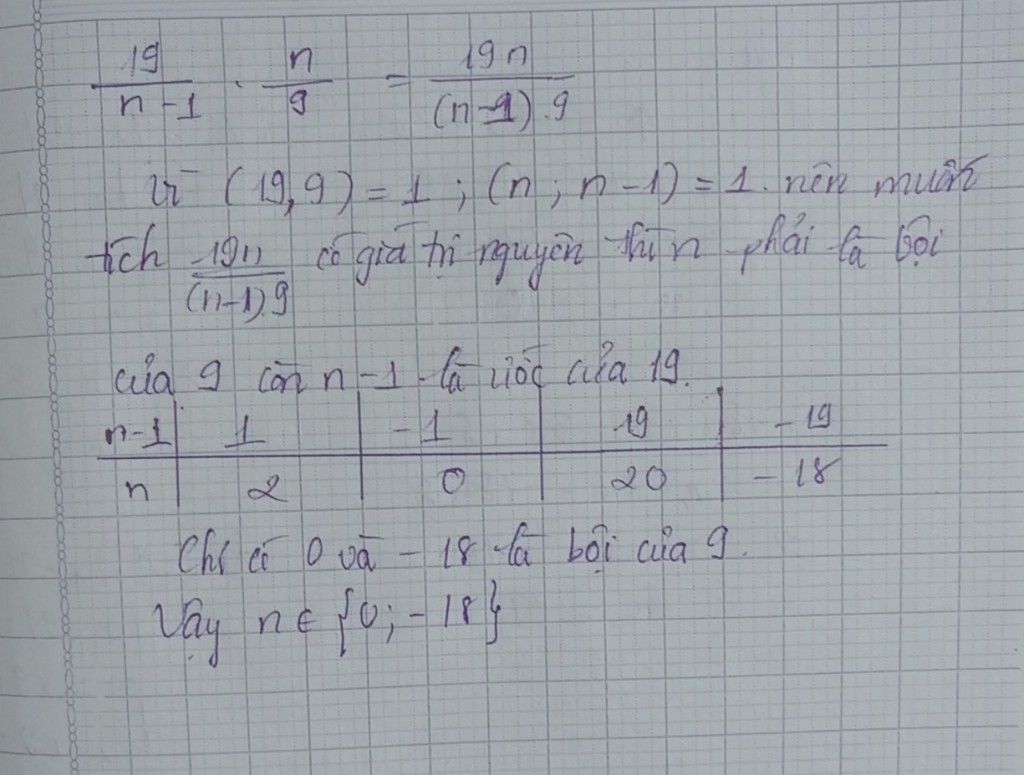 19/(n-1) . n/9 = 19n/((n-1).9)
Vì (19,9)=1; (n; n-1)=1. nên muốn
tích 19n/((n-1).9) có giá trị nguyên thì n phải là bội
của 9 còn n-1 là ước của 19.
n-1 | 1 | -1 | 19 | -19
n | 2 | 0 | 20 | -18
Chỉ có 0 và -18 là bội của 9.
Vậy n ∈ {0; -18}